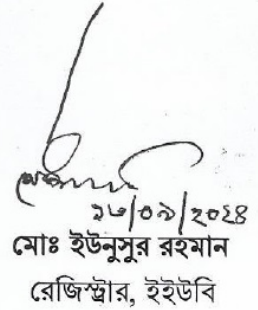 ১৮/০৯/২০২৪
মোঃ ইউনুসুর রহমান
রেজিস্ট্রার, ইইউবি